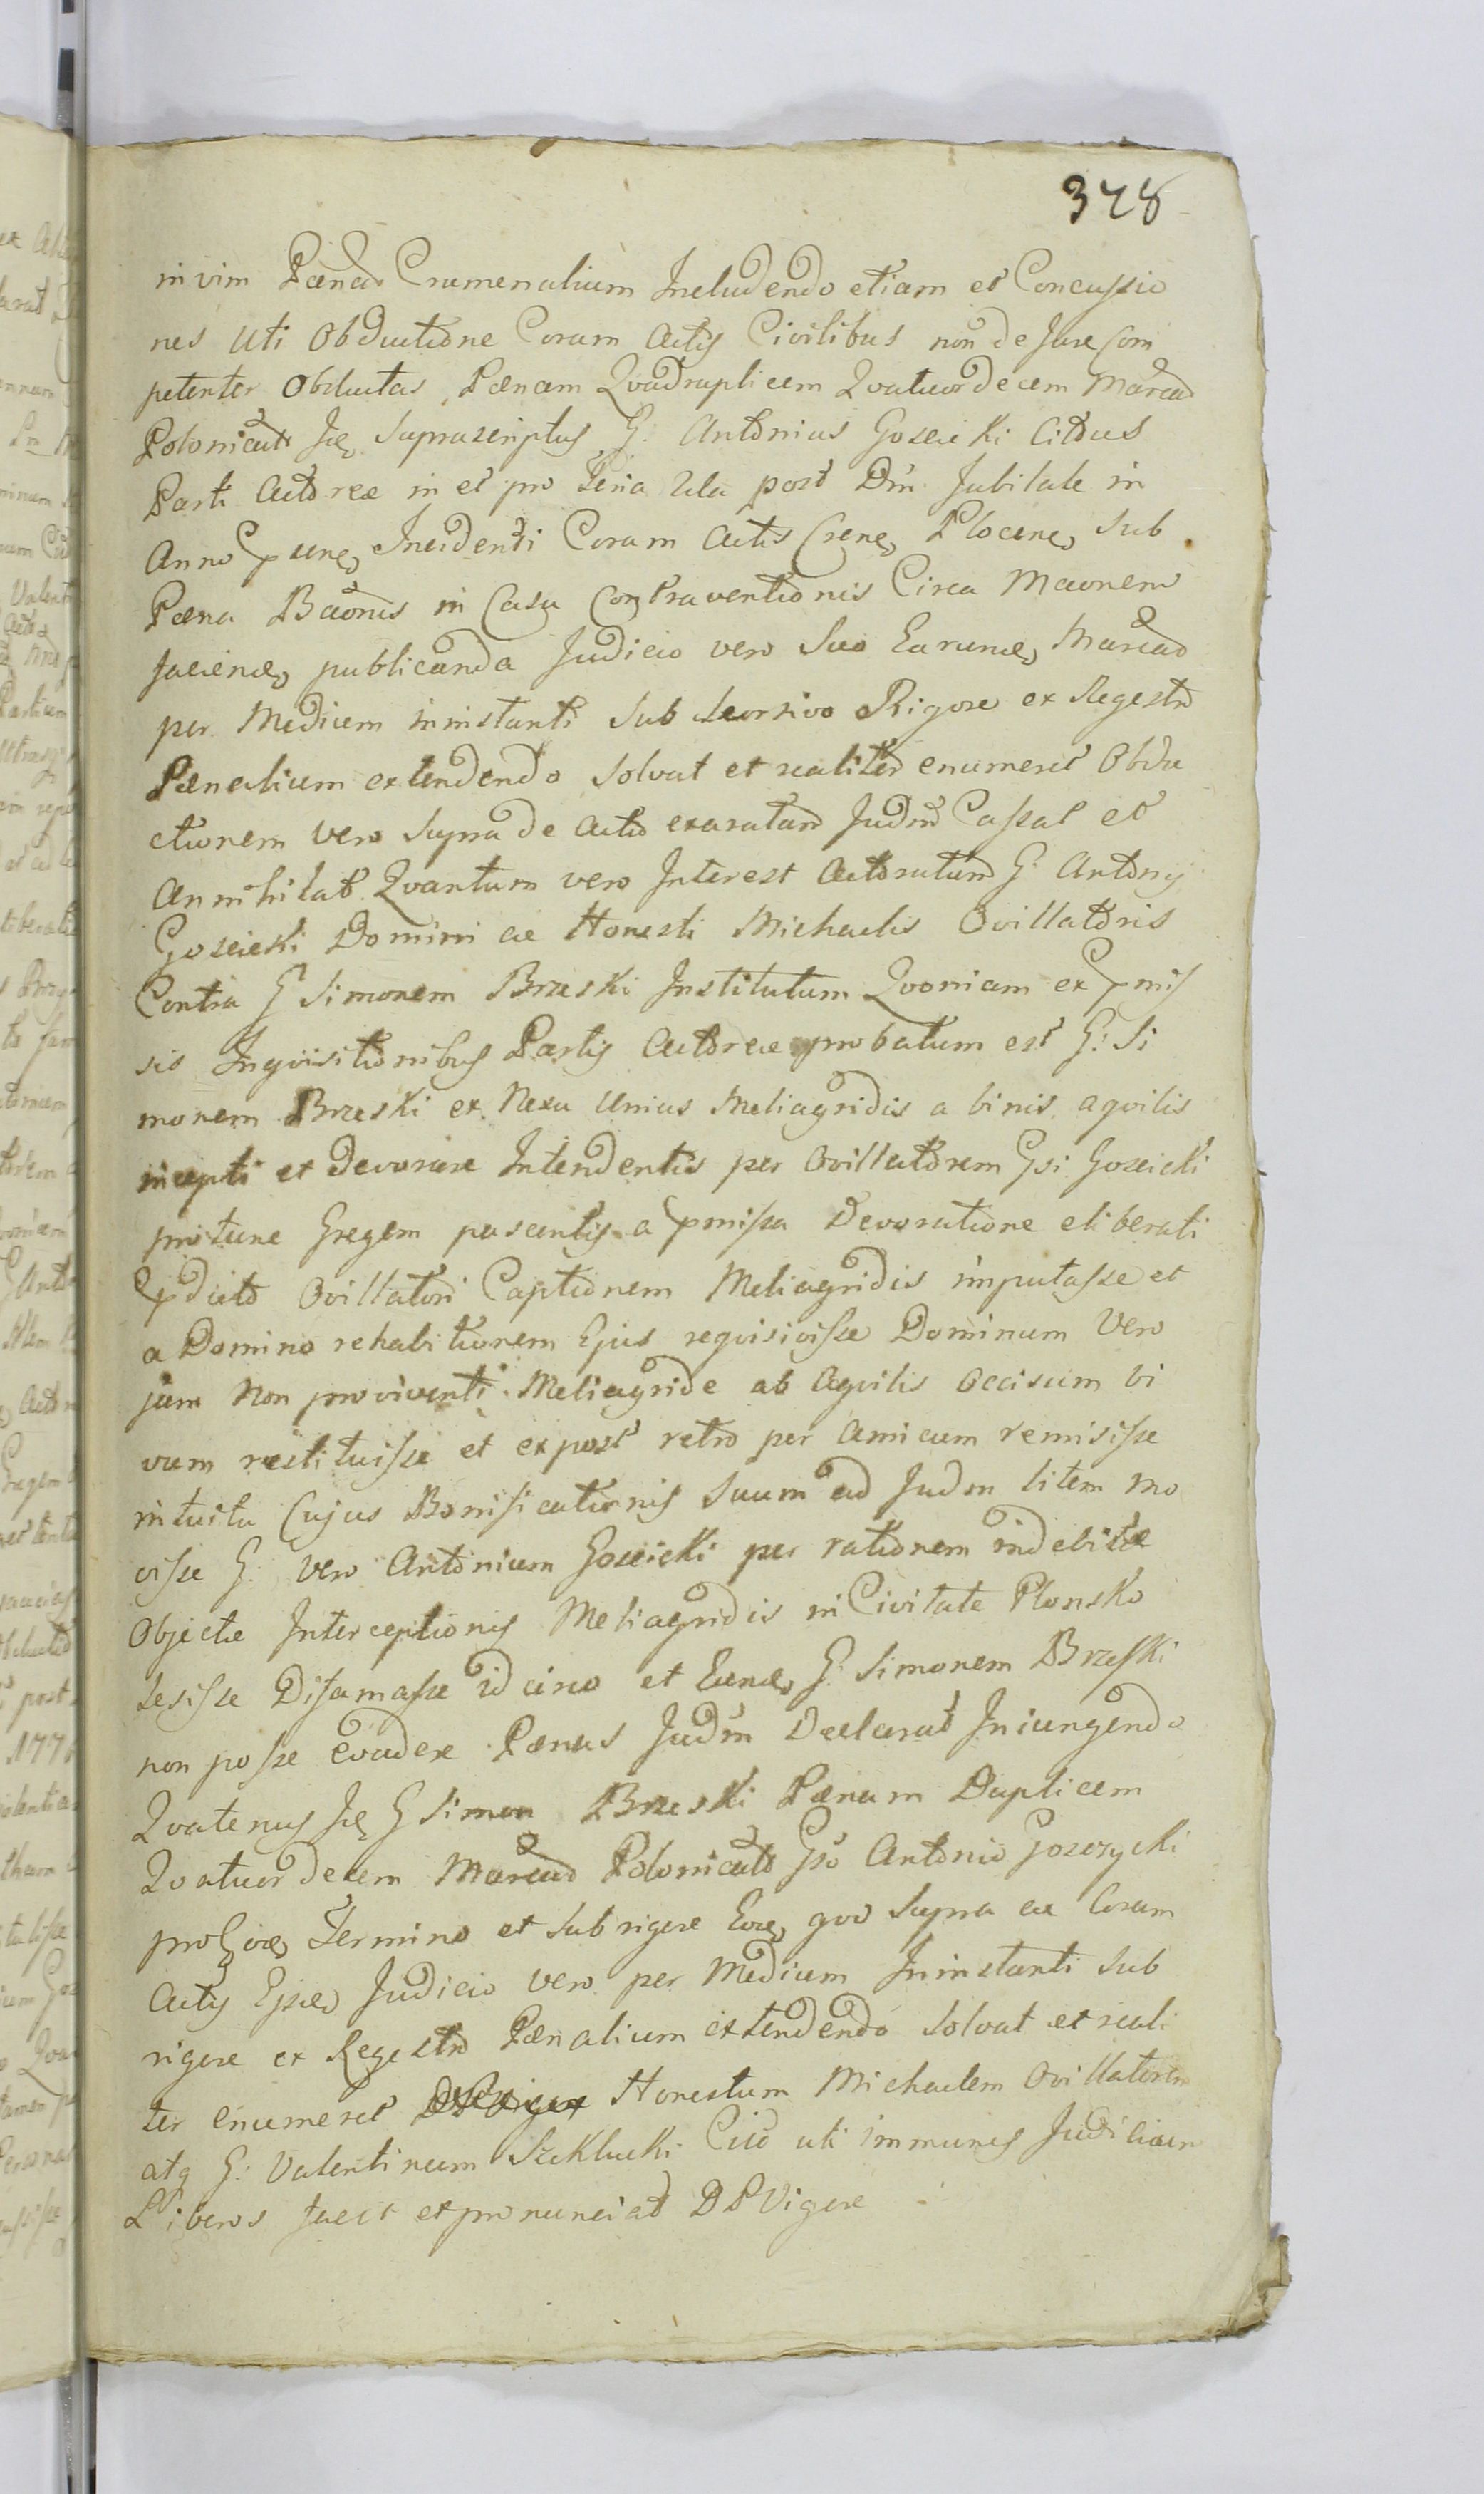 378
in vim Pænar Crumenalium Includendo etiam et Concussio
nes uti Obductione Coram Actis Civilibus non de Jure Com
petenter Obductas, Pænam Qvadruplicem Qvatuordecem Marcar
Polonicali Ide Suprascriptus G: Antonius Goscicki Citatus
Parti Actoreæ in et pro Feria 2da post Dm̃ Jubilate in
Anno Incidenti Coram Actis Plocen, Sub
Pæna Baõnis in Casu Contraventionis Circa Maonem
faciend, publicanda Judicio vero Suo Earund, Marcar
per Mediem in instanti Sub seorsivo Rigore ex Regestro
Pænalium extendendo solvat et realiter enumeret Obdu
ctionem vero Supra de Acto exaratam Judm̃ Cassat et
Annihilat. Qvantum vero Interest Actoratum G: Antonij
Goscicki Domini ac Honesti Michaelis Ovillatoris
Contra G Simonem Brzeski Institutum Qvoniam ex pmis
sis Inqvisitionibus Partis Actoreæ probatum est G: Si
monem Brzeski ex Nexu Unius Meliagridis a binis aqvilis
incepti et Devorare Intendentis per Ovillatorem Gsi Goscicki
pro tunc Gregem pascentis a pmissa Devoratione eliberati
pdicto Ovillatori Captionem Meliagridis imputasse et
a Domino rehabitionem Ejus reqvisivisse Dominum Vero
jam Non pro viventi Meliagride ab Aqvilis Occisum vi
vum restituisse et expost retro per Amicum remisisse
intuitu Cujus Bonificationis Suum ad Judm litem mo
visse G: Vero Antonium Goscicki per rationem indebitæ
Objectæ Interceptionis Meliagridis in Civitate Plonsko
Lesisse Difamasse id circo et Eund, G: Simonem Brzeski
non posse Evadere Pænas Judm̃ Declarat Iniungendo
Qvatenus Ide G Simon Brzeski Pænam Duplicem
Qvatuordecem Marcar Polonicali Gso Antonio Goscicki
pro Termino et Sub rigore Eod, qvo Supra ac Coram
Actis Judicio vero per Medium In instanti Sub
rigore ex Regestro Pænalium extendendo solvat et reali
ter enumeret Honestum Michaelem Ovillatorem
atq G: Valentinum Szklucki uti immunes Judicium
Liberos facit et pronunciat D P Vigore